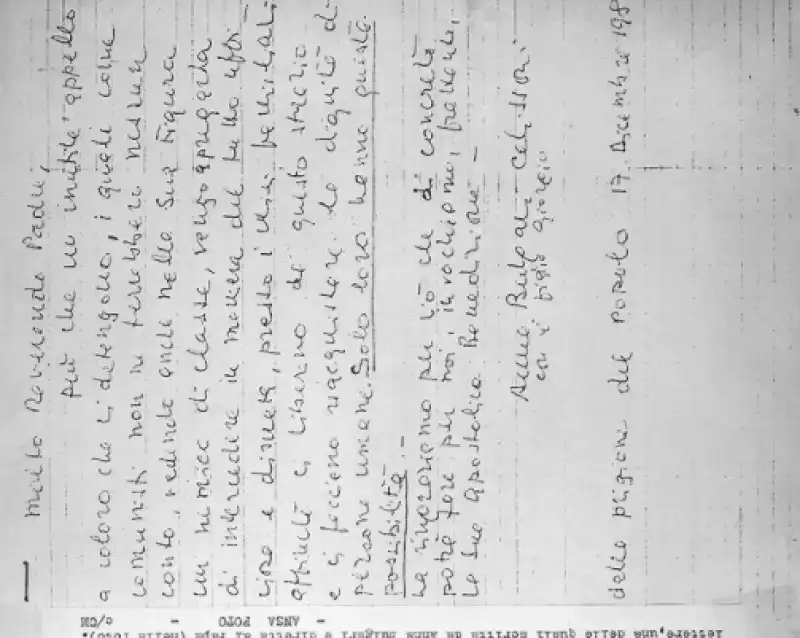 Molto Reverendo Padre,
più che un inutile appello
a coloro che ci detengono, i quali come
comunisti non ne terrebbero nessun
conto, vedendo anche nella Sua figura
un nemico di classe, vengo a pregarla
di intercedere in maniera del tutto uffi-
ciosa e discreta, presso i miei familiari
affinché ci liberino da questo strazio
e ci facciano riacquistare la dignità di
persone umane. Solo loro hanno questa
possibilità. -
La ringraziamo per ciò che di concreto
potrà fare per noi, invochiamo, frattanto,
la Sua Apostolica Benedizione -
Anna Bulgari Calissoni
con il figlio Giorgio
dalla prigione del popolo 17 Dicembre 198
lettere, una delle quali scritta da Anna Bulgari e diretta al Papa (nella foto).
- ANSA FOTO - c/CM